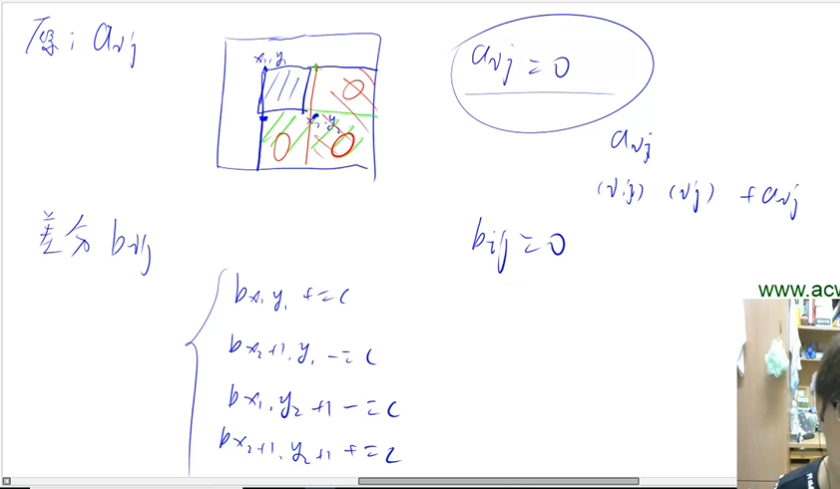 原: aij
x₁,y₁
x₂,y₂
aij = 0
aij
(i,j) (i,j) +aij
差分 bij
bij = 0
bx₁,y₁ += c
bx₂+1,y₁ -= c
bx₁,y₂+1 -= c
bx₂+1,y₂+1 += c
www.acw